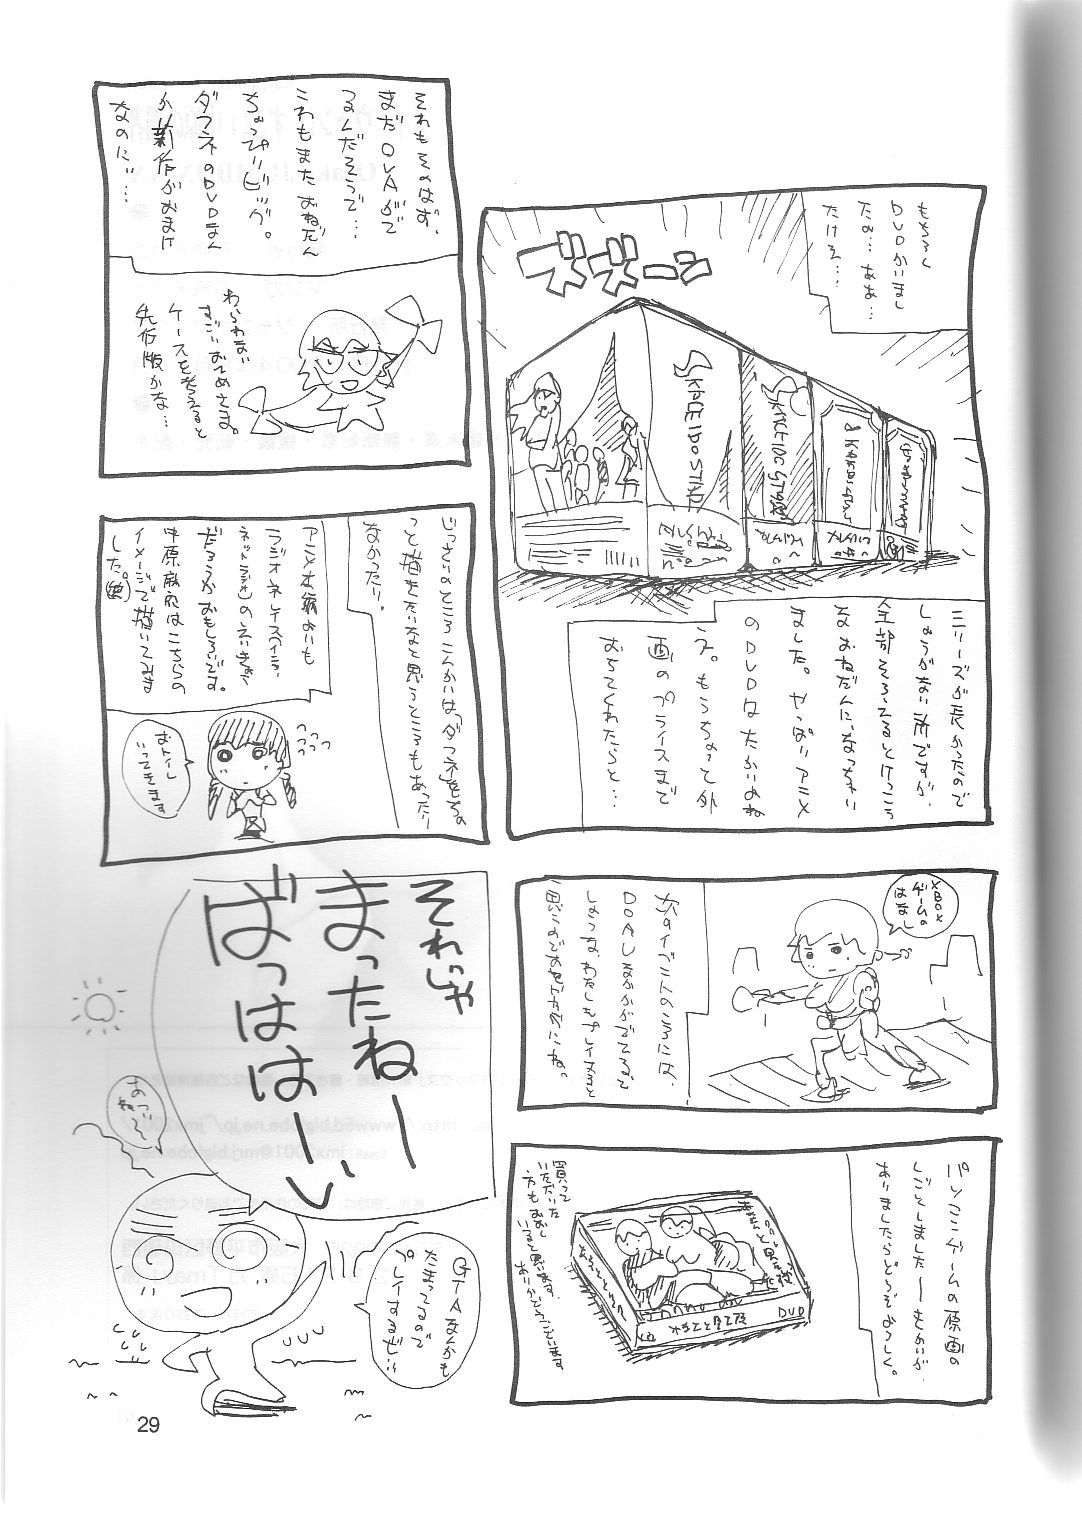 もちろん
DVDかいまし
たの…ああ…
たけえ…
ズズーン
KALEIDO STAR
シリーズが長かったので
しょうがない所ですが、
全部そろってるとけっこう
なおねだんになっちゃい
ました。やっぱりアニメ
のDVDはたかいよね
え。もうちょっと外
画のプライスまで
おちてくれたらと…
それもそのはず、
まだOVAがで
るんだそうで…
これもまたおねだん
ちょっぴりビッグ。
ダフネのDVDまん
が新作がおまけ
なのに…
わらわない
すごいおとめさま。
ケースを考えると
先行版かな…
じっさいのところこんかいは「ダフネ」をちゃ
っと描きたいなと思うところもあったり
なかったり。
アニメ本編よりも
ラジオネレイス(インター
ネットラジオ)のえいきょう
だろうかおもしろいです。
中原麻衣はこちらの
イメージで描いてみま
した。(笑)
おトイレ
いってきます
XBOX
ゲームの
はなし
次のイベントのころには、
DOAUなんかがでてるで
しょうな、わたしもプレイすると
思うのでおてやわらかにね。
パソコンゲームの原画の
しごとしました──きかいが
ありましたらどうぞよろしく。
買って
いただいた
方もおおい
いると思います、
ありがとうございます
DVD
それじゃ
まったねー
ばっははーい
あついねー
GTAまんかも
たまってるので
プレイするぜ!!
29